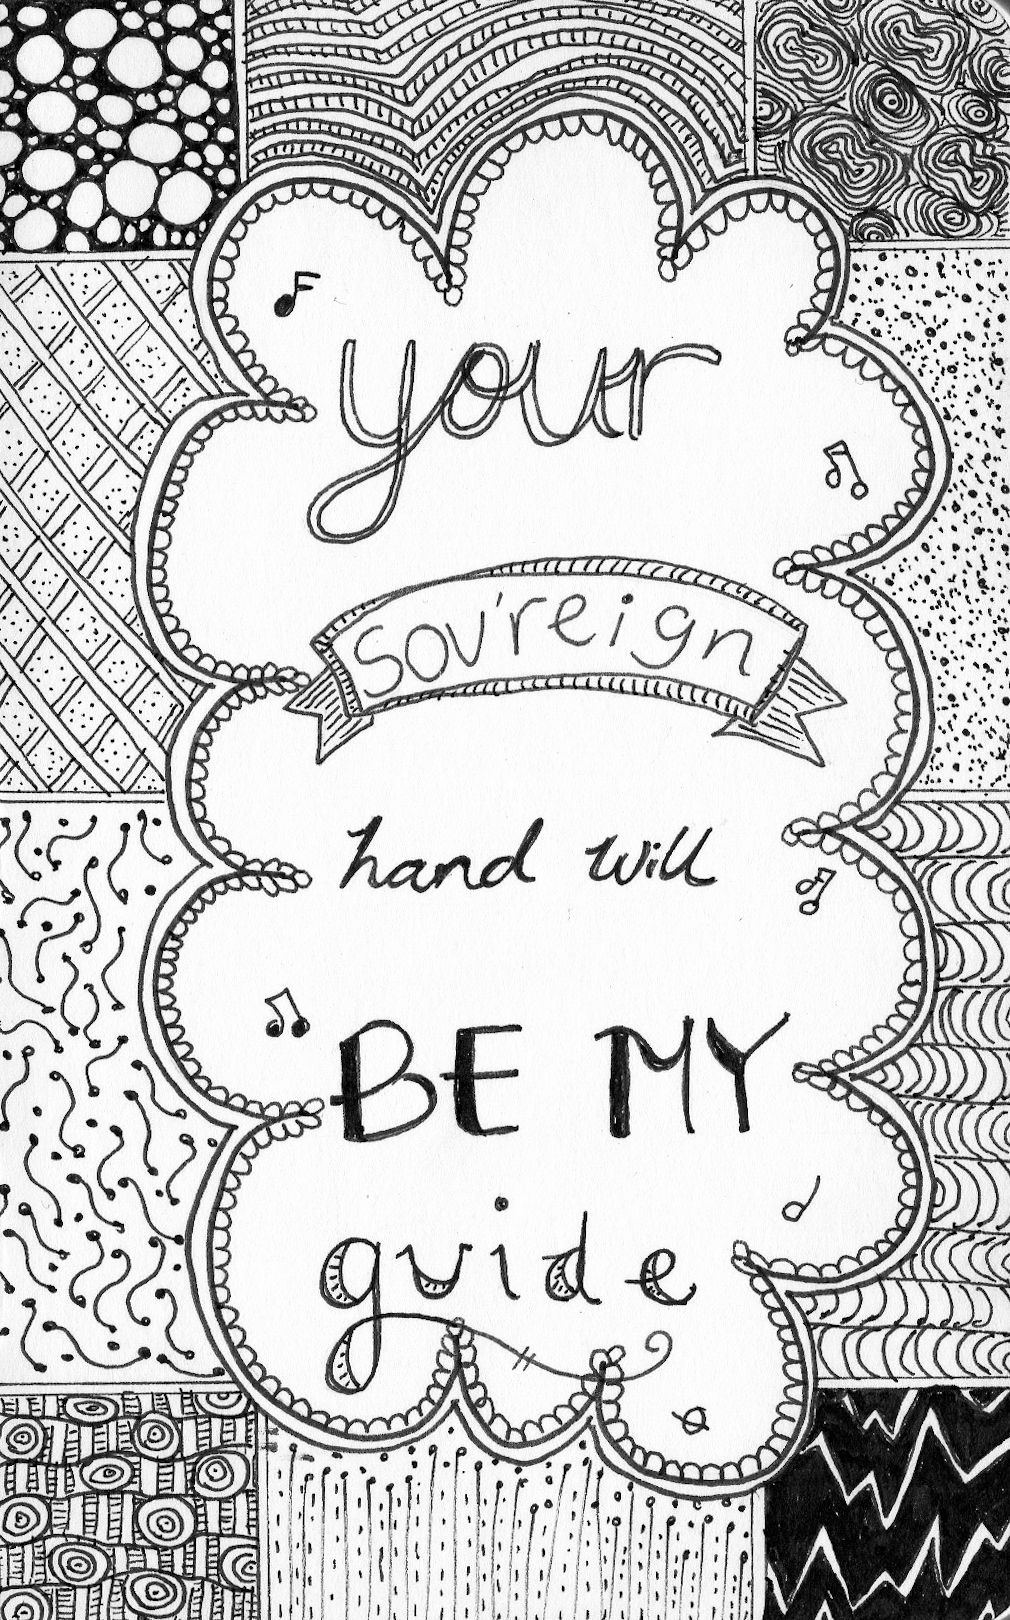 your
Sov'reign
hand will
BE MY
guide